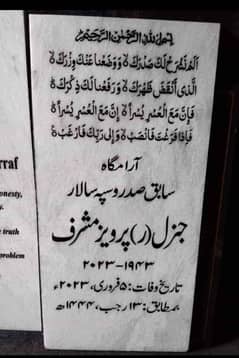 بسم الله الرحمن الرحيم
اَلَمْ نَشْرَحْ لَكَ صَدْرَكَ ۝ وَوَضَعْنَا عَنْكَ وِزْرَكَ ۝
الَّذِي أَنْقَضَ ظَهْرَكَ ۝ وَرَفَعْنَا لَكَ ذِكْرَكَ ۝
فَإِنَّ مَعَ الْعُسْرِ يُسْرًا ۝ إِنَّ مَعَ الْعُسْرِ يُسْرًا ۝
فَإِذَا فَرَغْتَ فَانْصَبْ ۝ وَإِلَىٰ رَبِّكَ فَارْغَبْ ۝
آرام گاہ
سابق صدر و سپہ سالار
جنرل (ر) پرویز مشرف
۱۹۴۳-۲۰۲۳
تاریخ وفات: ۵ فروری، ۲۰۲۳ء
بمطابق: ۱۳ رجب، ۱۴۴۴ھ
rraf
onesty,
truth
problem